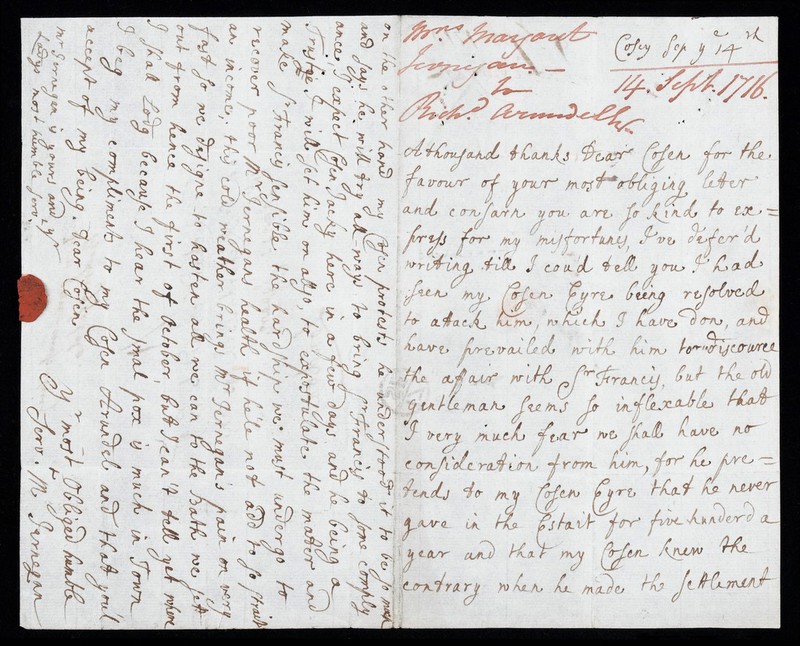 Mrs Margaret
Jernigan.—
to
Richd Arundell
Cosey Sep ye 14th
14. Sept. 1716.
A thousand thanks Dear Cosen for the
favour of your most obliging letter
and consarn you are so kind to ex=
press for my misfortunes, I've defer'd
writing till I coud tell you I had
seen my Cosen Eyre being resolved
to attack him, which I have don, and
have prevailed with him to discource
the affair with Sr Francis, but the old
gentleman seems so inflexable that
I very much fear we shall have no
consideration from him, for he pre=
tends to my Cosen Eyre that he never
gave in the Estait for five hunderd a
year and that my Cosen knew the
contrary when he made the settlement
on the other hand my Cosen protests he understood it to be so much
and says he will try all ways to bring Sr Francis to some comply
ance, I expect Cosen Jacky here in a few days and he being a
Trustee I will set him on also, to expostulate the matter and
make Sr Francis sensible the hardship we must undergo to
recover poor Mr Jernegans health if he'le not add to so strait
an income; this cold weather brings Mr Jernegan's pain on very
fast so we designe to hasten all we can to the Bath we sett
out from hence the first of October, but I can't tell yet where
I shal Lodg because I hear the smal pox is much in Town
I beg my compliments to my Cosen Arundel and that you'l
accept of my being. Dear Cosen
Yr most Obliged humble
Serv. M Jernegan
Mr Jernegan is yours and my
Ladys most humble Servt